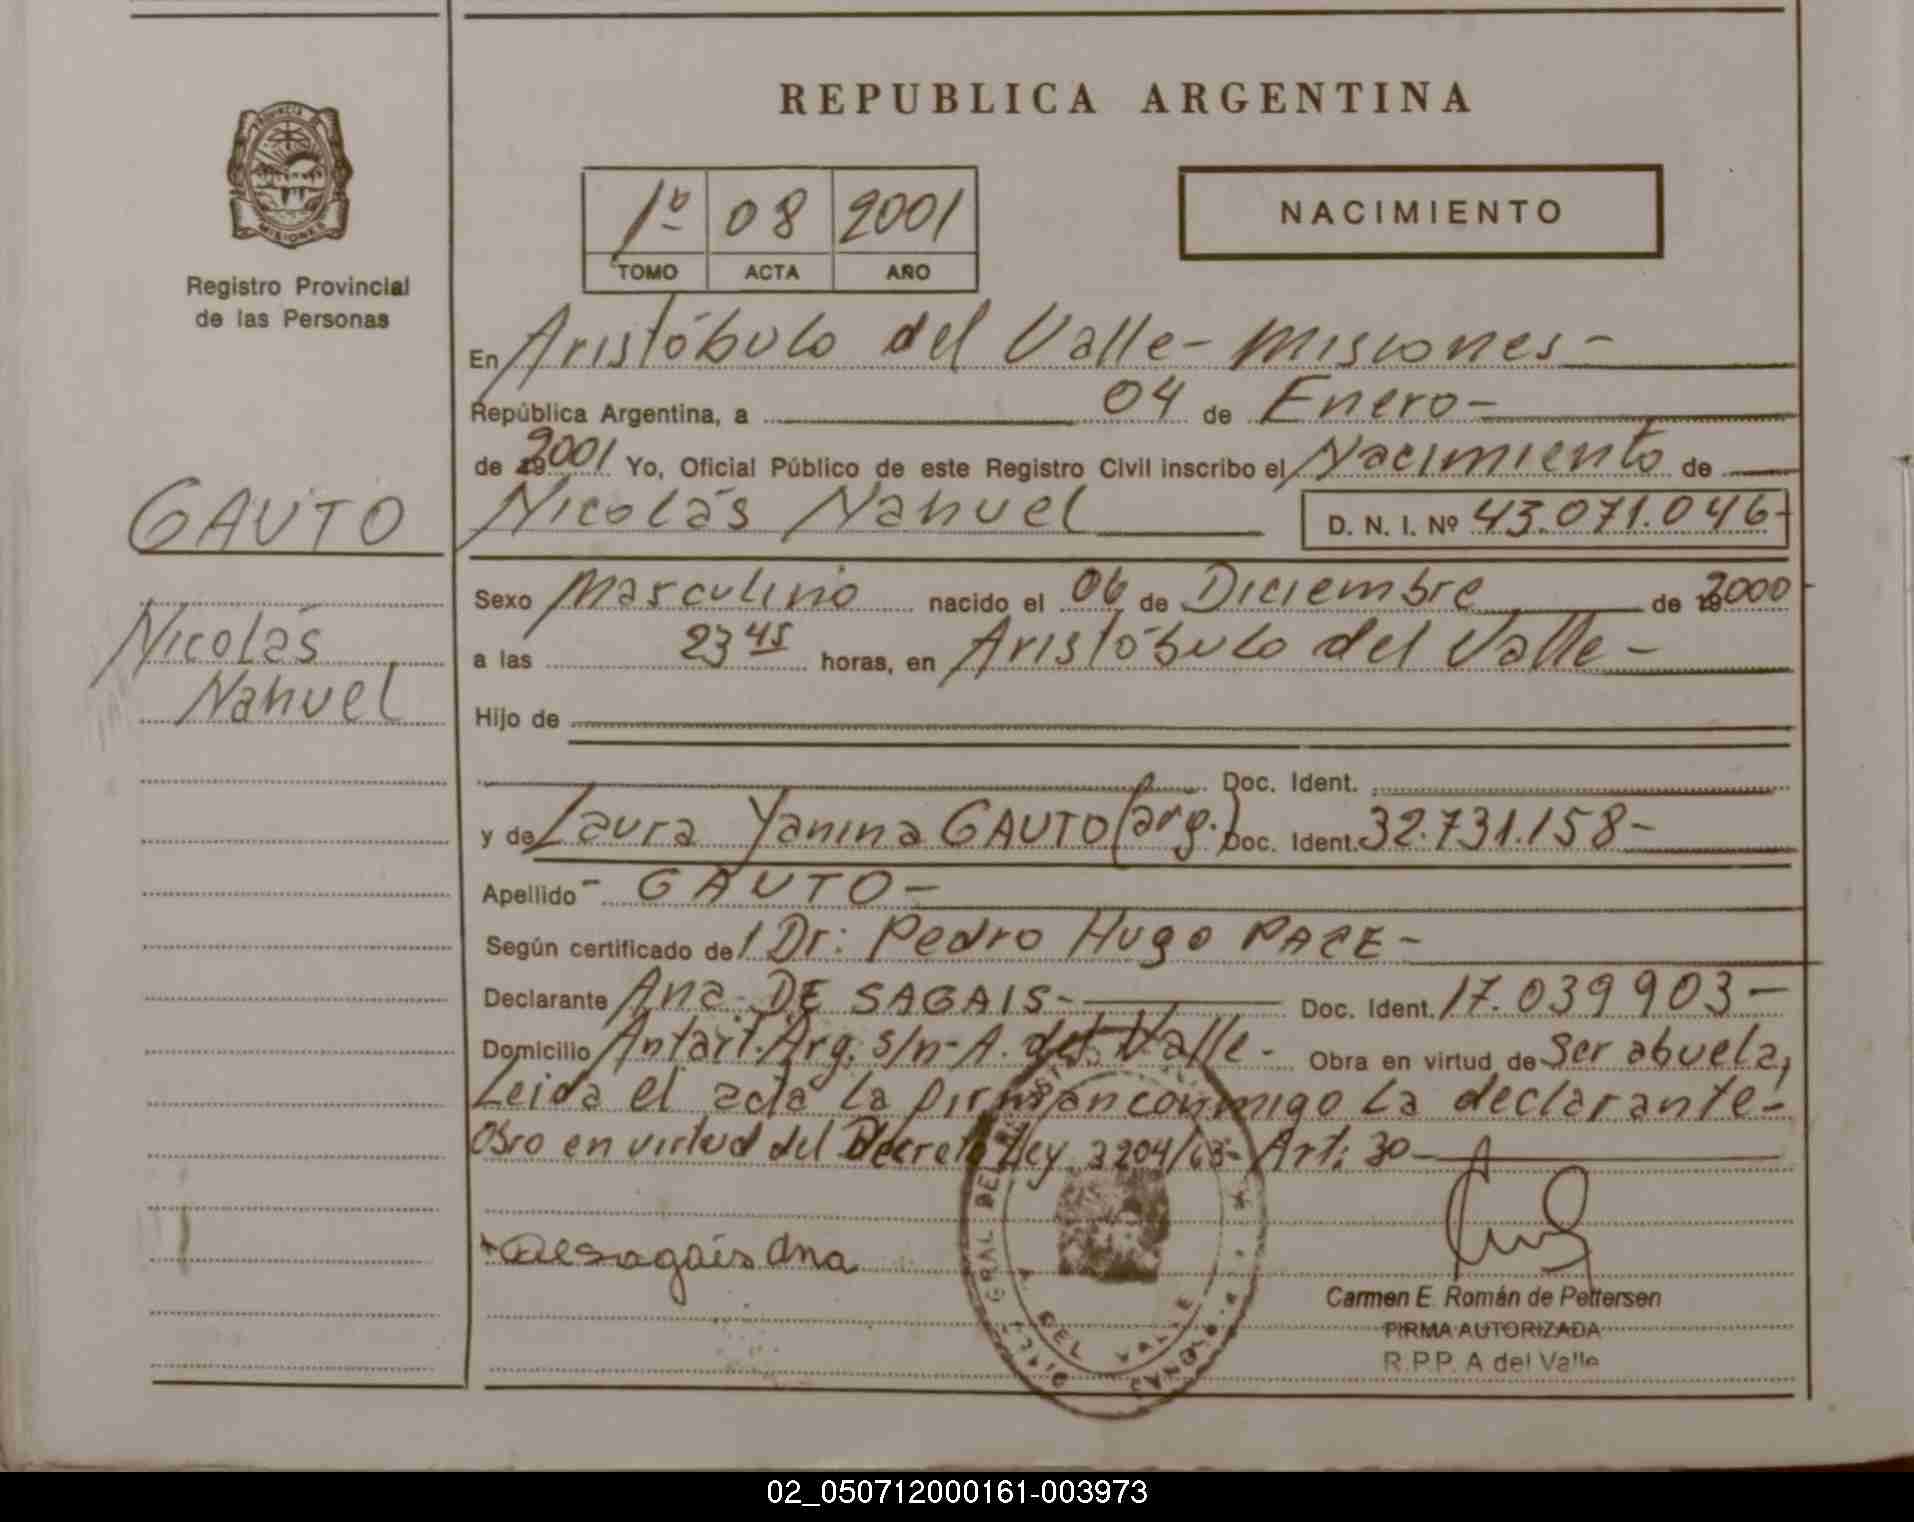 REPUBLICA ARGENTINA
PROVINCIA D
MISIONES
Registro Provincial
de las Personas
1º 08 2001
TOMO ACTA AÑO
NACIMIENTO
En Aristóbulo del Valle - Misiones -
República Argentina, a 04 de Enero -
de 2001 Yo, Oficial Público de este Registro Civil inscribo el Nacimiento de
GAUTO
Nicolás Nahuel D. N. I. Nº 43.071.046-
Nicolás
Nahuel
Sexo Masculino nacido el 06 de Diciembre de 2000
a las 23 45 horas, en Aristóbulo del Valle -
Hijo de
Doc. Ident.
y de Laura Yanina GAUTO (arg.) Doc. Ident. 32.731.158-
Apellido - GAUTO -
Según certificado de Dr: Pedro Hugo PACE -
Declarante Ana DE SAGAIS - Doc. Ident. 17.039 903 -
Domicilio Antárt. Arg. s/n - A. del Valle - Obra en virtud de Ser abuela,
Leida el acta la firman conmigo la declarante -
Obro en virtud del Decreto Ley 2204/63- Art: 30 -
Desagais Ana
GRAL DEL
A DEL VALLE
Carmen E. Román de Pettersen
FIRMA AUTORIZADA
R.P.P. A del Valle
02_050712000161-003973